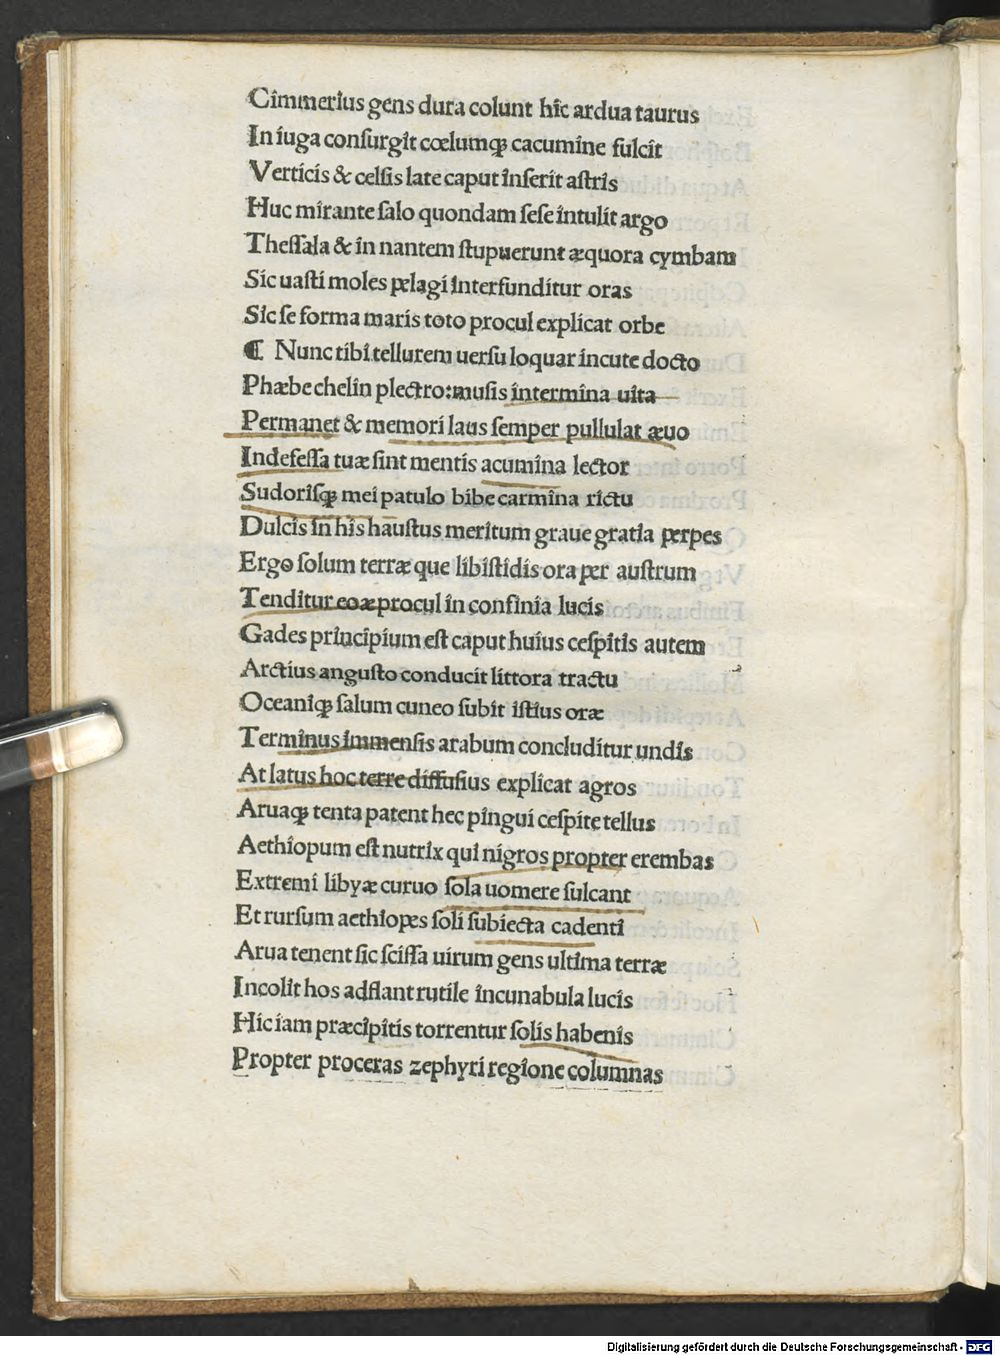 Cimmerius gens dura colunt hic ardua taurus
In iuga conſurgit cœlumqꝫ cacumine fulcit
Verticis & celſis late caput inſerit aſtris
Huc mirante ſalo quondam ſeſe intulit argo
Theſſala & in nantem ſtupuerunt æquora cymbam
Sic uaſti moles pelagi interfunditur oras
Sic ſe forma maris toto procul explicat orbe
¶ Nunc tibi tellurem uerſu loquar incute docto
Phæbe chelin plectro: muſis intermina uita
Permanet & memori laus ſemper pullulat æuo
Indefeſſa tuæ ſint mentis acumina lector
Sudoriſqꝫ mei patulo bibe carmina rictu
Dulcis in his hauſtus meritum graue gratia perpes
Ergo ſolum terræ que libiſtidis ora per auſtrum
Tenditur eoæ procul in confinia lucis
Gades principium eſt caput huius ceſpitis autem
Arctius anguſto conducit littora tractu
Oceaniqꝫ ſalum cuneo ſubit iſtius oræ
Terminus immenſis arabum concluditur undis
At latus hoc terre diffuſius explicat agros
Aruaqꝫ tenta patent hec pingui ceſpite tellus
Aethiopum eſt nutrix qui nigros propter erembas
Extremi libyæ curuo ſola uomere ſulcant
Et rurſum aethiopes ſoli ſubiecta cadenti
Arua tenent ſic ſciſſa uirum gens ultima terræ
Incolit hos adflant rutile incunabula lucis
Hic iam præcipitis torrentur ſolis habenis
Propter proceras zephyri regione columnas
Digitalisierung gefördert durch die Deutsche Forschungsgemeinschaft - DFG